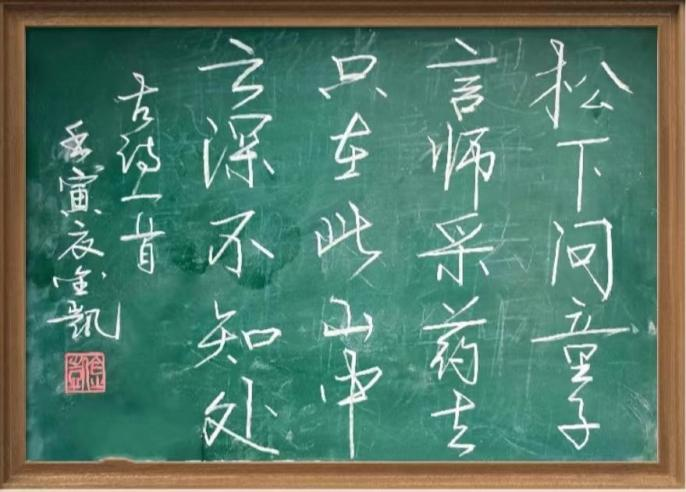 松下问童子
言师采药去
只在此山中
云深不知处
古诗一首
壬寅夜金凯